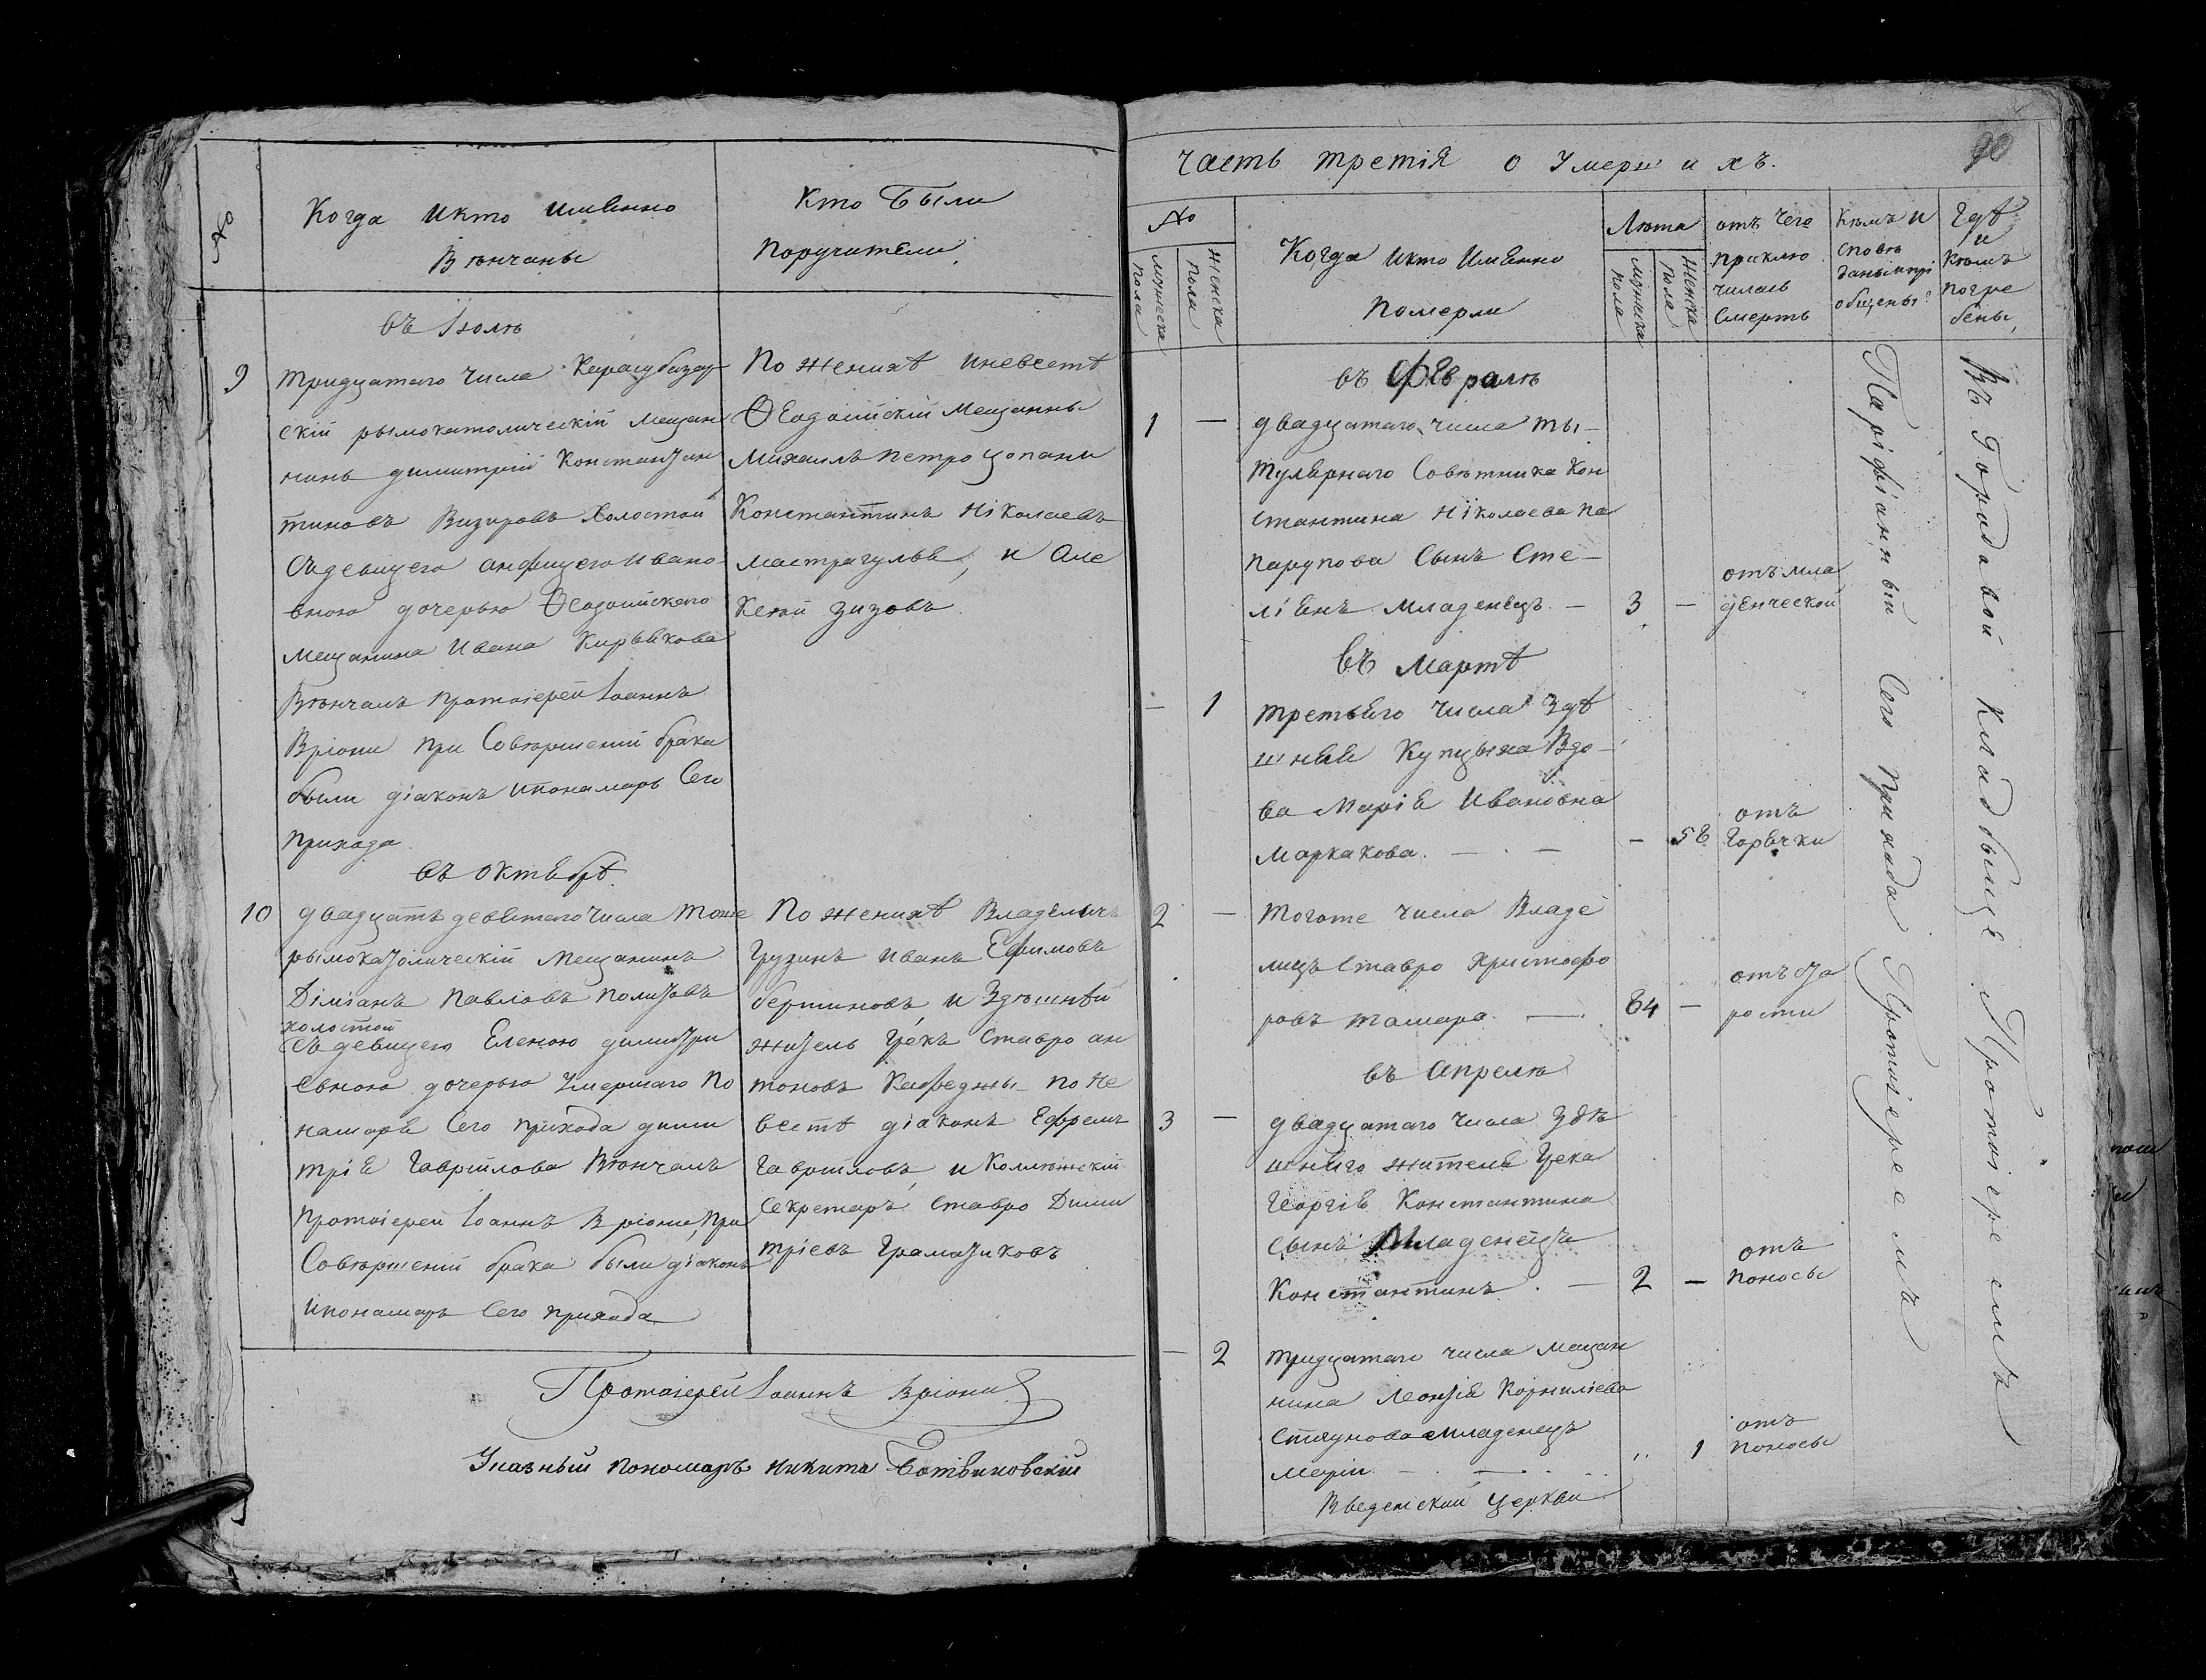 №
Когда икто имѣнно
Вѣнчаны
Кто Были
поручители
въ Іюлѣ
9
тридцатаго числа Карасубазар
скій рымокатолическій мещан
нинъ димитрій Константан
тиновъ Визировъ Холостой
съдевицего анфицего Ивано
вною дочерью Ѳеодосійскаго
мещанина Ивана Кирьякова
Вѣнчалъ протоіерей Іоаннъ
Вріони при Совѣршеній брака
были діаконъ ипонамарь Сего
прихода
По женихѣ иневестѣ
Ѳеодосійскій мещаннъ
Михаилъ петро
Константинъ Ніколаевъ
мастрагулье, и Але
Ксѣй зизовъ
въ октебрѣ
10
двадцать девѣтаго числа тоже
рымокатолическій мещанинъ
Даміанъ павловъ
холостой
Съ девицею Еленою димитри
Евною дочерью Умершаго По
намаря Сего прихода дими
трія Гаврилова Вѣнчалъ
протоіерей Іоаннъ Вріони, при
Совѣршеній брака были діаконъ
ипономарь Сего прихода
По женихѣ Владѣлыцъ
грузинъ иванъ Ефимовъ
бертиновъ, и Здѣшнѣй
житель Грекъ Ставро ан
тоновъ по не
вестѣ діаконъ Ефремъ
Гавриловъ, и
Секретаръ Ставро Дими
тріевъ Граматиковъ
Протоіерей Іоаннъ Вріони
Указный пономаръ никита Ботвиновскій
часть третія о умершихъ.
90
№
мужеска пола
Женска пола
Когда икто Имѣнно
померли
Лѣта
мужска пола
Женска пола
отъ Чего
приклю
чилась
Смерть
Кѣмъ и
сповѣ
даныипрі
общены?
Гдѣ
и
Кѣмъ
погре
бены,
въ Февралѣ
1 —
двадцатаго числа ты—
тулярнаго Совѣтника Кон
стантина Ніколаева па
парупова Сынъ Сте—
ліянъ младенецъ. — 3 —
отъ мла
дѣнческой
въ мартѣ
— 1
третьяго числа Здѣ
шняя Купцыха Вдо—
ва Марія Ивановна
Маркакова. — . — — 58
отъ
Горячки
2 —
тогоже числа Владѣ
лицъ Ставро Христофо
ровъ — 84 —
отъ ста
рости
въ апрелѣ
3 —
двадцатаго числа здѣ
шнѣго жителя Грека
Георгія Константина
сынъ младенецъ
Константинъ. — 2 —
отъ
поносы
— 2
тридцатаго числа мещан
нина Корниліева
младенецъ
маріи — . — . .. ,, 1
отъ
поносы
Введенской церкви
Паріфіаннъій Сего прихода Протоіереемъ
Въ Городовой Кладбыще Протоіереемъ